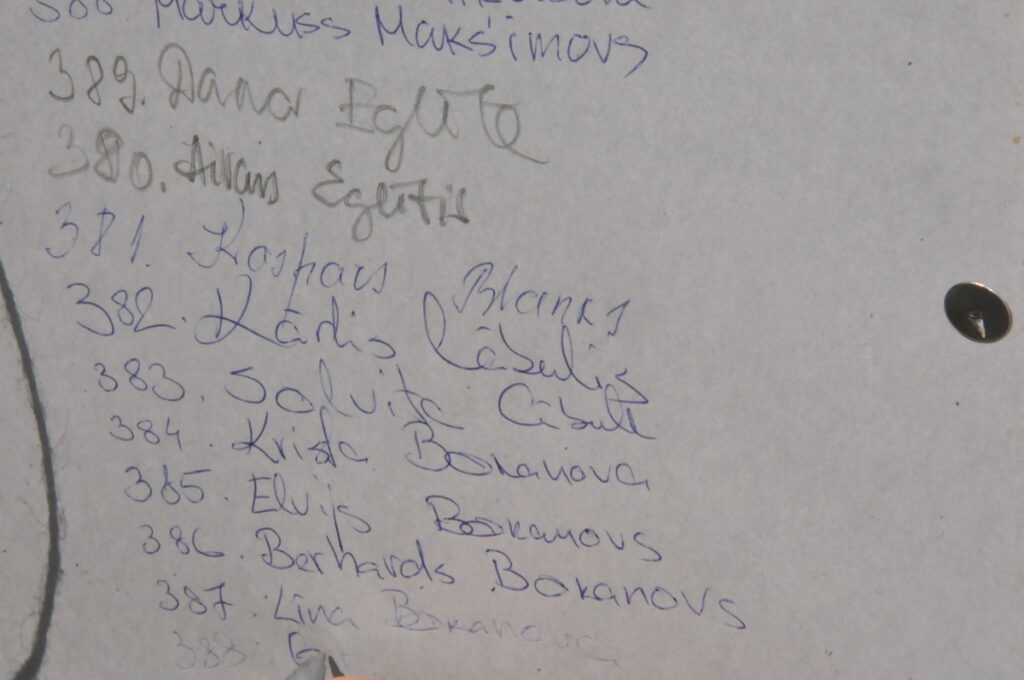 Markuss Maksimovs
389. Dana Eglīte
380. Aivars Eglītis
381. Kaspars Blanks
382. Kārlis Cābulis
383. Solvita Cābule
384. Krista Bokanova
385. Elvijs Bokanovs
386. Bernards Bokanovs
387. Līna Bokanova
388.